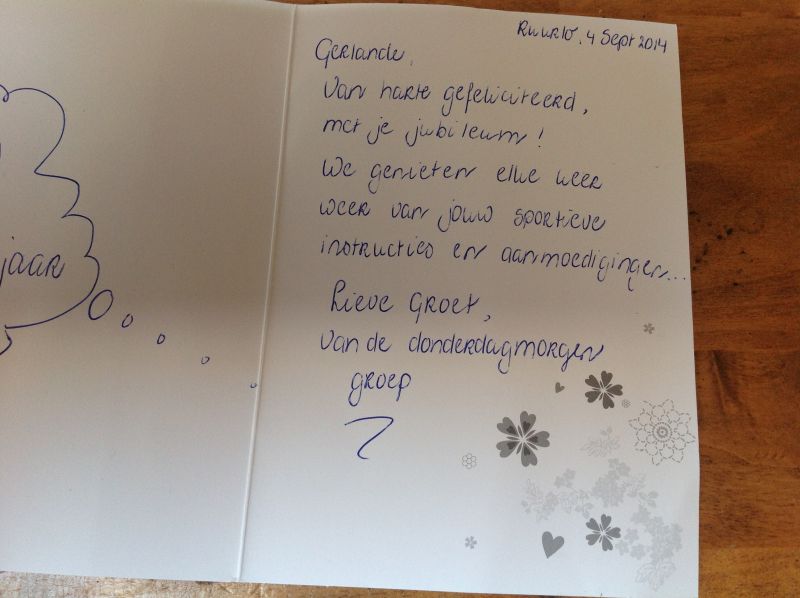 jaar
Ruurlo, 4 Sept 2014
Gerlande,
Van harte gefeliciteerd,
met je jubileum!
We genieten elke keer
weer van jouw sportieve
instructies en aanmoedigingen...
Lieve Groet,
van de donderdagmorgen
groep